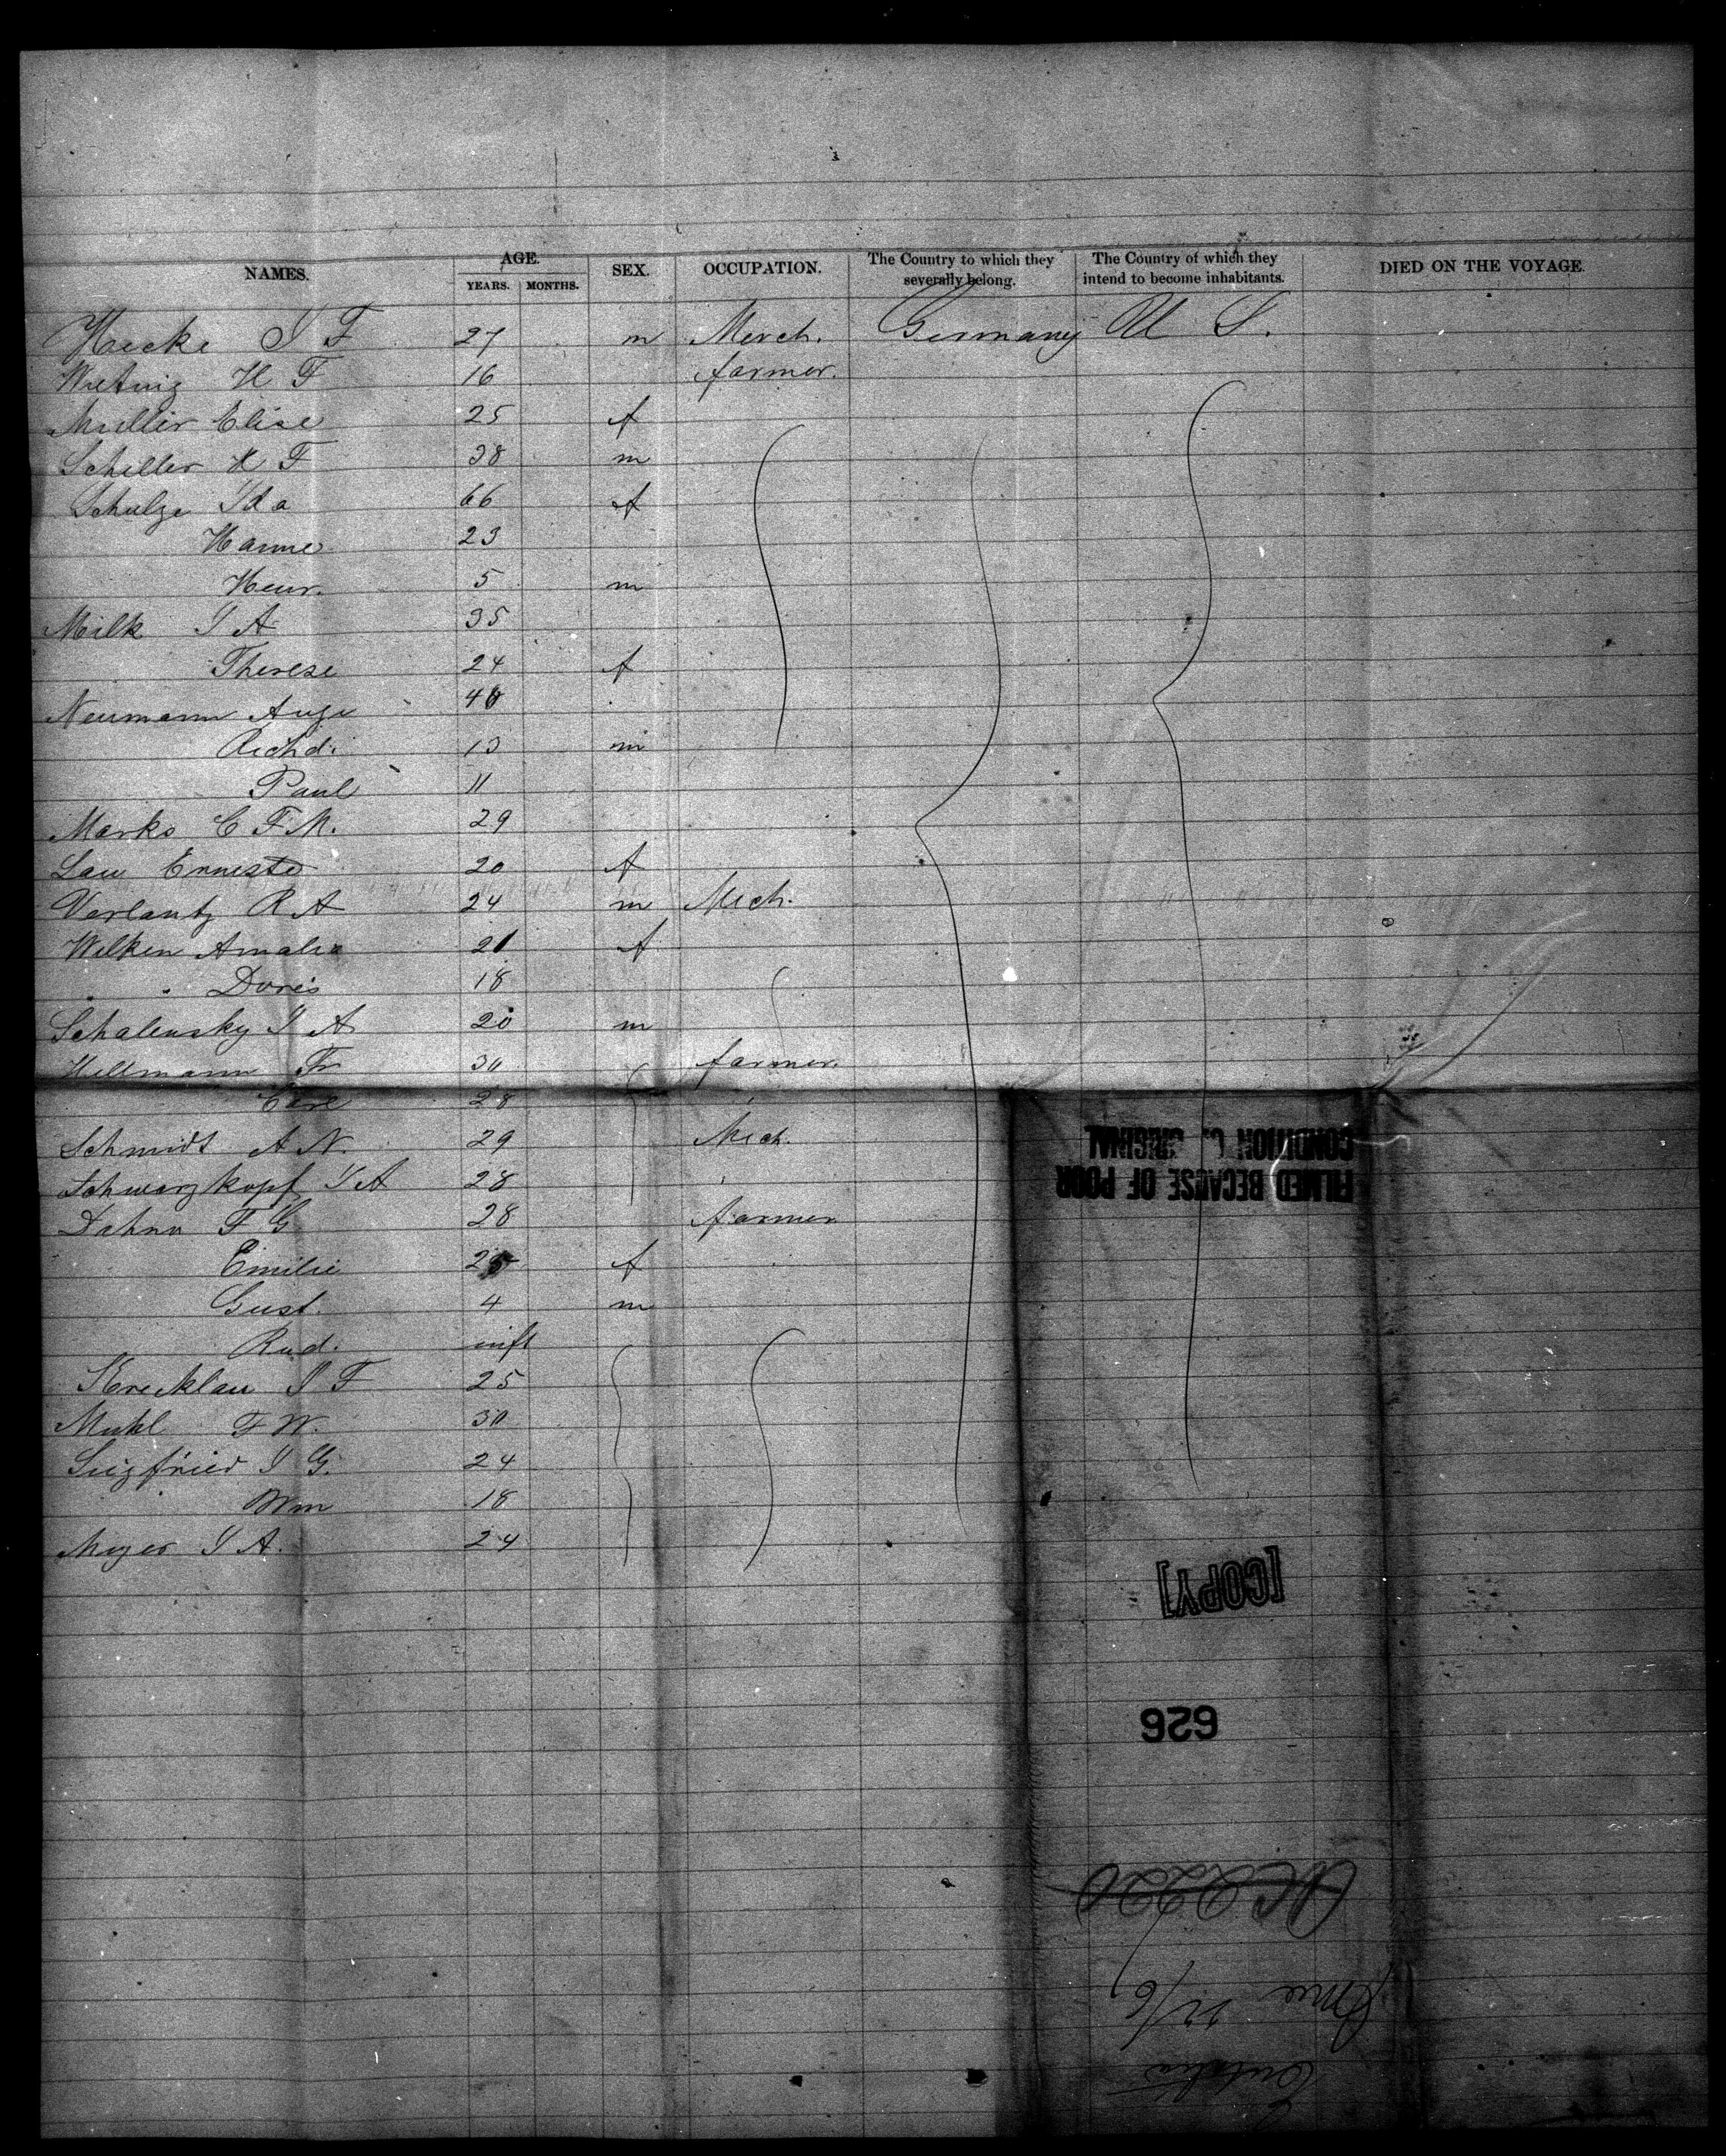 NAMES. AGE. YEARS. MONTHS. SEX. OCCUPATION. The Country to which they severally belong. The Country of which they intend to become inhabitants. DIED ON THE VOYAGE.
Hecke I F 27 m Merch. Germany U S.
H F 16 farmer.
Muller Elise 25 f
Schiller H F 38 m
Schulze Ida 66 f
Hanne 23
Heinr. 5 m
Milk I A 35
Therese 24 f
Neumann Auge 40
Richd. 13 m
Paul 11
Marks C F M. 29
Lau Erneste 20 f
Verlantz R A 24 m Mech.
Wilken Amalia 21 f
" " Doris 18
Schalensky I A 20 m
Hellmann Fr 30 farmer.
28
Schmidt A N. 29 Mech.
Schwarzkopf I A 28
Dahnv F G 28 farmer
Emilie 25 f
Gust. 4 m
Rud. inft
Krecklau I F 25
Muhl F W. 30
Siegfried I G. 24
Wm 18
Meyer I A. 24
FILMED BECAUSE OF POOR
CONDITION OF ORIGINAL
[COPY]
626